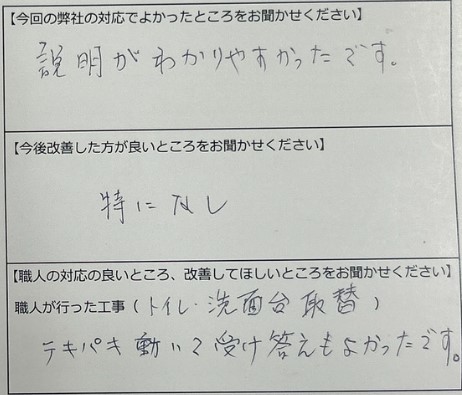 【今回の弊社の対応でよかったところをお聞かせください】
説明がわかりやすかったです。
【今後改善した方が良いところをお聞かせください】
特になし
【職人の対応の良いところ、改善してほしいところをお聞かせください】
職人が行った工事（トイレ・洗面台取替）
テキパキ動いて受け答えもよかったです。